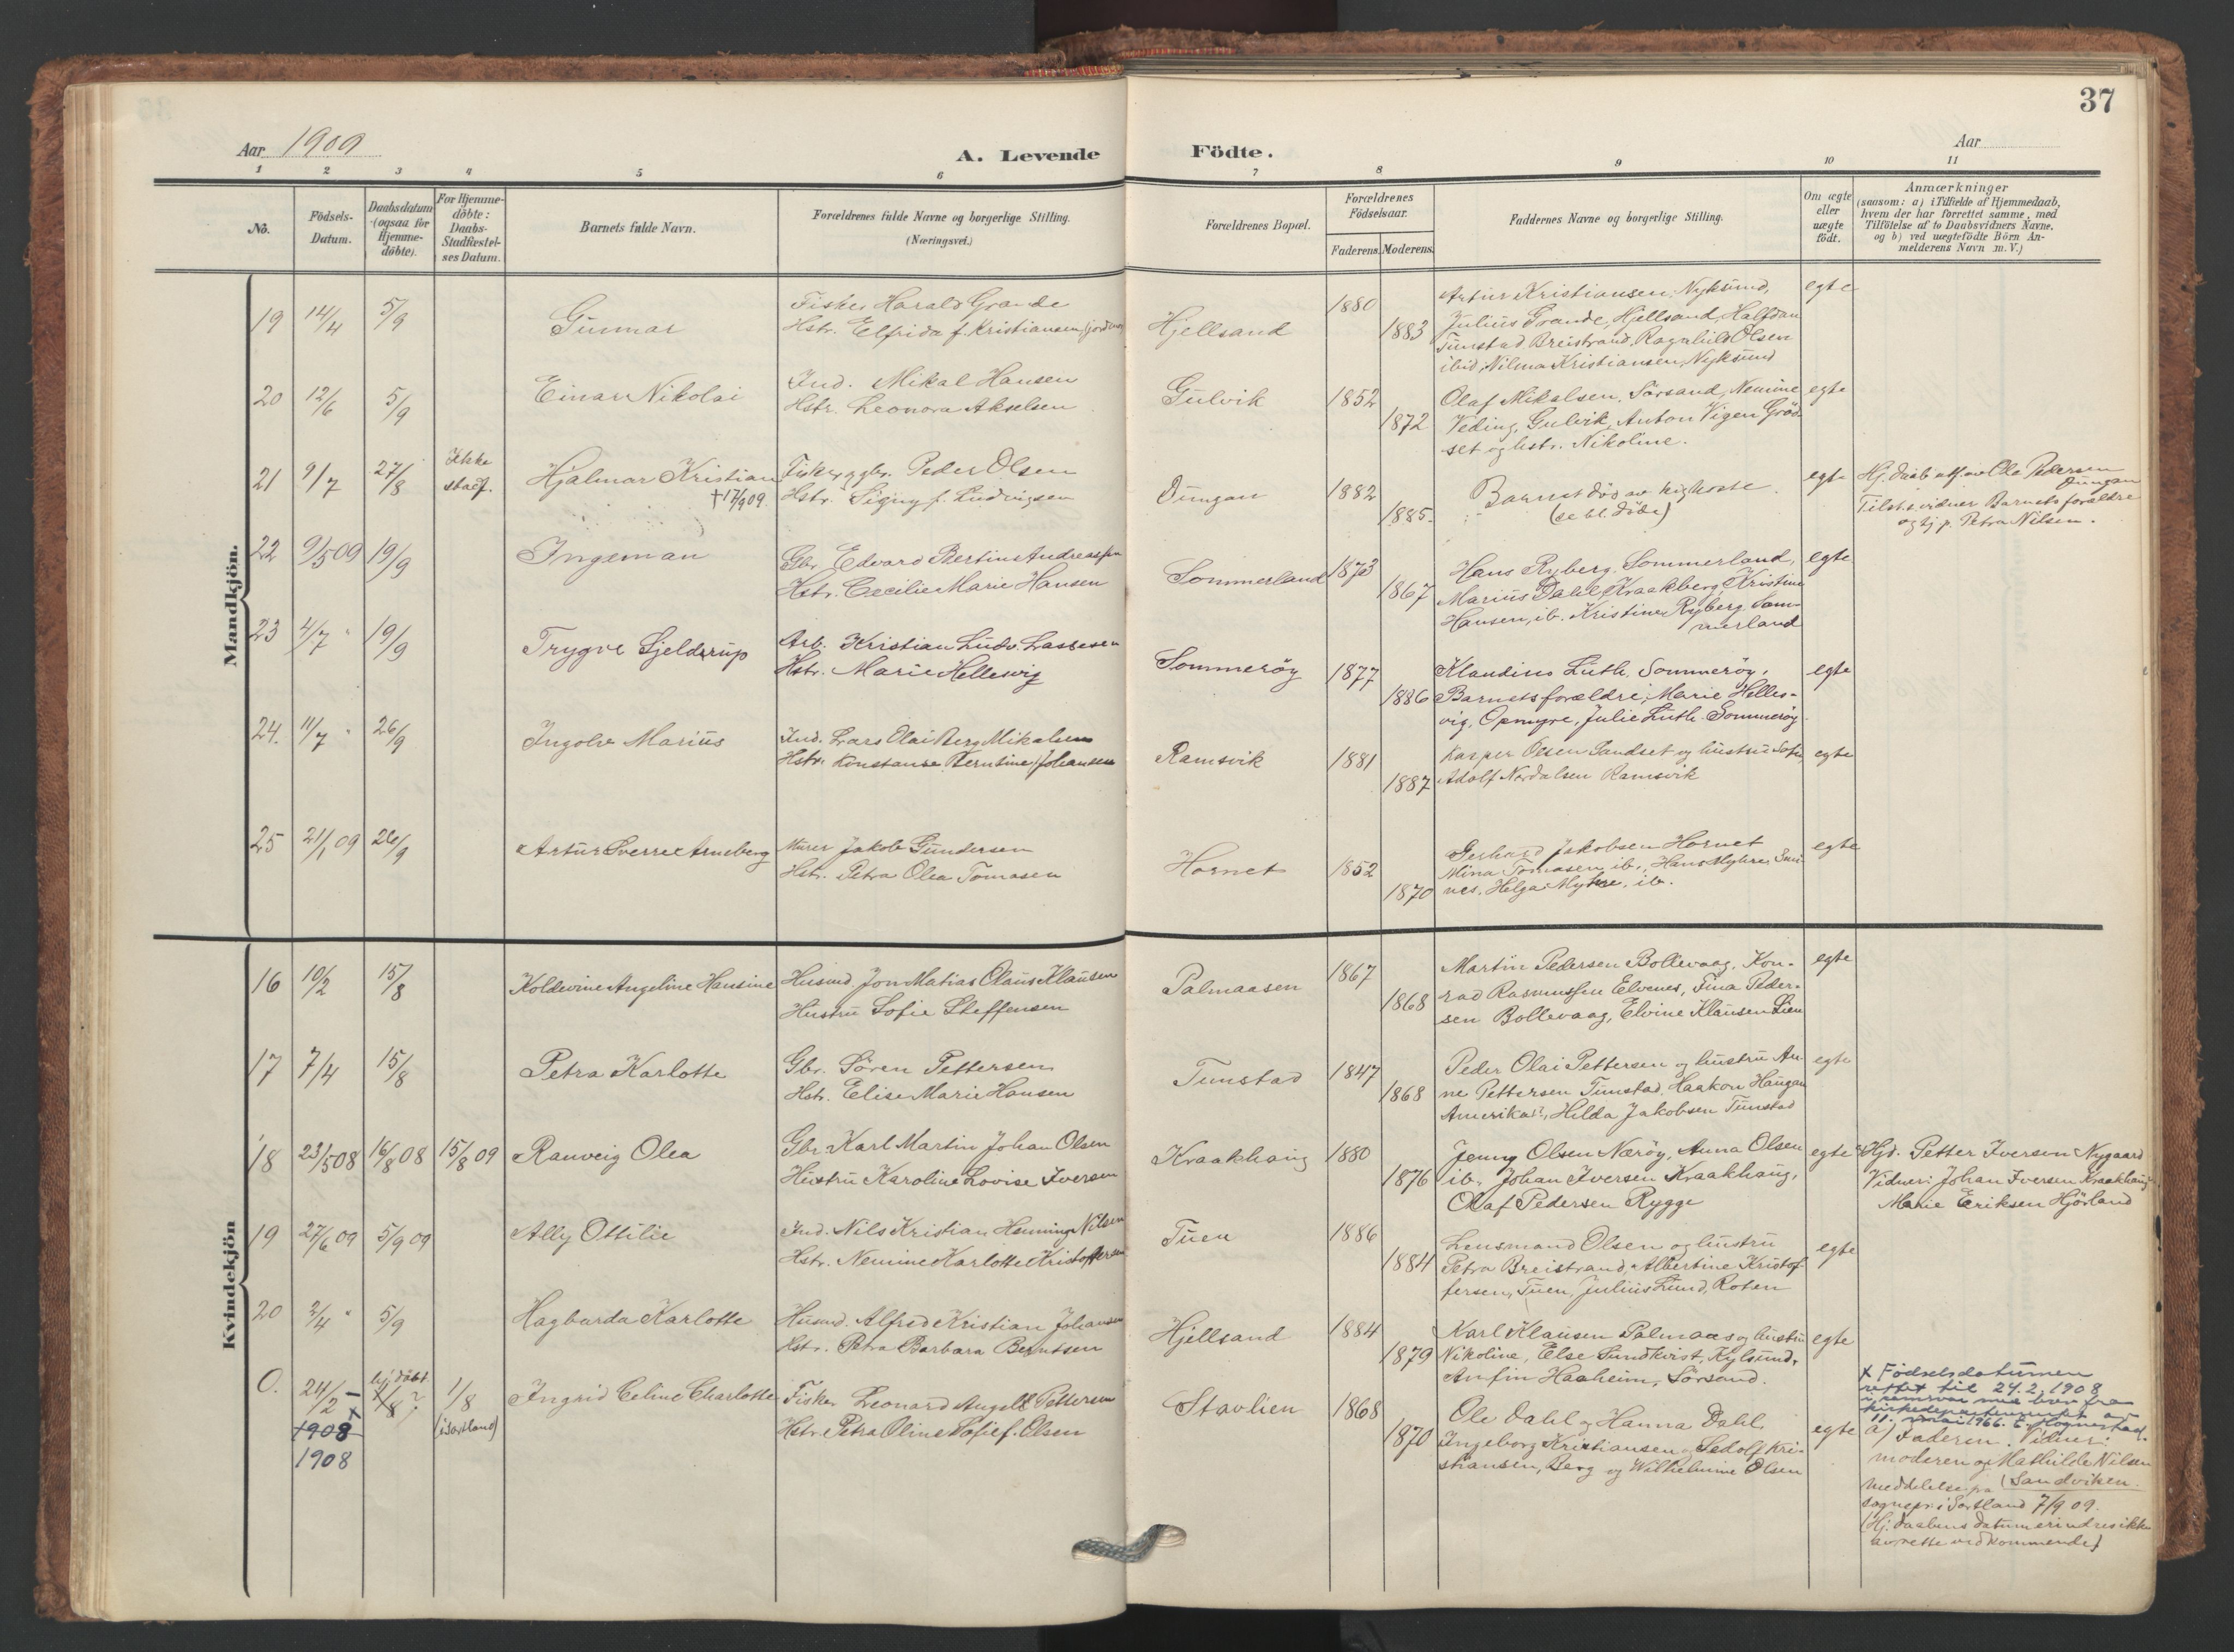 37
Aar 1909
A. Levende
Födte.
Aar
1 2 3 4 5 6 7 8 9 10 11
No.
Födsels-
Datum.
Daabsdatum
(ogsaa for
Hjemme-
döbte).
For Hjemme-
döbte:
Daabs-
Stadfæstel-
ses Datum.
Barnets fulde Navn.
Forældrenes fulde Navne og borgerlige Stilling.
(Næringsvei.)
Forældrenes Bopæl.
Forældrenes
Födselsaar.
Faderens. Moderens.
Faddernes Navne og borgerlige Stilling.
Om ægte
eller
uægte
födt.
Anmærkninger
(saasom: a) i Tilfælde af Hjemmedaab,
hvem der har forrettet samme, med
Tilföielse af to Daabsvidners Navne.
og b) ved uægtefödte Börn An-
melderens Navn m. V.)
Mandkjön.
19 14/4 5/9 Gunnar
Fisker Harald Grande
Hstr. Elfrida f. Kristiansen
Hjellsand 1880 1883
Artur Kristiansen, Nyksund,
Julius Grande, Hjellsand, Halfdan
Tunstad Breistrand, Ragnhild Olsen
ibid, Nilma Kristiansen, Nyksund
egte
20 12/6 5/9 Einar Nikolai
Ind. Mikal Hansen
Hstr. Leonora Akselsen
Gulvik 1852 1872
Olaf Mikalsen, Sörsand, Nemine
Veding, Gulvik, Anton Vigen Gröd-
set og hstr. Nikoline.
egte
21 9/7 27/8 Ikke
stadf.
Hjalmar Kristian
† 17/9 09.
Fisker og gbr. Peder Olsen
Hstr. Signy f. Ludvigsen
Dungan 1882 1885.
Barnet död av kighoste.
(se bl. döde)
egte
Hj. daab utf. av Ole Pedersen
Dungan
Tilst. vidner Barnets forældre
og tj. p. Petra Nilsen.
22 9/5 09 19/9 Ingeman
Gbr. Edvard Bertinus Andreassen
Hstr. Cecilie Marie Hansen
Sommerland 1873 1867
Hans Ryberg, Sommerland,
Marius Dahl, Kraakberg, Kristine
Hansen, ib. Kristine Ryberg Som-
merland
egte
23 4/7 " 19/9 Trygve Gjeldrup
Arb. Kristian Ludv. Lassesen
Hstr. Marie Hellesvig
Sommeröy 1877 1886
Klaudius Luth, Sommeröy,
Barnets forældre, Marie Helles-
vig, Opmyre, Julie Luth. Sommeröy.
egte
24. 11/7 " 26/9 Ingolv Marius
Ind. Lars Olai Berg Mikalsen
Hstr. Konstanse Berntine Johansen
Ramsvik 1881 1887
Kasper Olsen Sandset og hustru Sofie,
Adolf Nordalsen Ramsvik
egte
25 21/1 09 26/9 Artur Sverre Arneberg
Murer Jakob Gundersen
Hstr. Petra Olea Tomasen
Hornet 1852 1870
Gerhard Jakobsen Hornet
Mina Tomasen ib., Hans Myhre Smi-
nes, Helga Myhre, ib.
egte
Kvindekjön
16 10/2 15/8 Koldevine Angeline Hansine
Husmd Jon Matias Olaus Klausen
Hustru Sofie Steffensen
Palmaasen 1867 1868
Martin Pedersen Bollevaag, Kon-
rad Rasmussen Elvenes, Tina Peder-
sen Bollevaag, Elvine Klausen Lien
egte
17 7/4 15/8 Petra Karlotte
Gbr. Sören Pettersen
Hstr. Elise Marie Hansen
Tunstad 1847 1868
Peder Olai Pettersen og hustru An-
ne Pettersen Tunstad, Haakon Haugan
Amerika, Hilda Jakobsen Tunstad
egte
18 23/5 08 16/8 08 15/8 09 Ranveig Olea
Gbr. Karl Martin Johan Olsen
Hustru Karoline Lovise Iversen
Kraakhaug 1880 1876
Jenny Olsen Næröy, Anna Olsen
ib., Johan Iversen Kraakhaug,
Olaf Pedersen Rygge
egte
Hjd. Petter Iversen Nygaard
Vidner: Johan Iversen Kraakhaug
Marie Eriksen Hjörland
19 27/6 09 5/9 09 Ally Ottilie
Ind. Nils Kristian Henning Nilsen
Hstr. Nemine Karlotte Kristoffersen
Tuen 1886 1884
Lensmand Olsen og hustru
Petra Breistrand, Albertine Kristof-
fersen, Tuen, Julius Lund, Roten
egte
20 2/4 " 5/9 Hagbarda Karlotte
Husmd. Alfred Kristian Johansen
Hstr. Petra Barbara Berntsen
Hjellsand 1884 1879
Karl Klausen Palmaas og hustru
Nikoline, Else Sundkvist, Nyksund,
Anfin Haaheim, Sörsand.
egte
0. 24/2 x
1908
1908
hj. döbt
/8 ?
1/8
(i Sortland)
Ingrid Celine Charlotte
Fisker Leonard Angell Pettersen
Hstr. Petra Oline Sofie f. Olsen
Stavlien 1868 1870
Ole Dahl og Hanna Dahl
Ingeborg Kristiansen og Sedolf Kri-
stiansen, Berg og Wilhelmine Olsen
egte
x Födselsdatumen
rettet til 24.2.1908
i samsvar med brev fra
kirkedepartementet av
11. mai 1966. E. Hognestad.
a) Faderen. Vidner:
moderen og Mathilde Nilsen
(Sandviken.
Meddelelse fra
sognepr. i Sortland 7/9 09.
(Hj. daabens datum erindres ikke
av rette vedkommende)